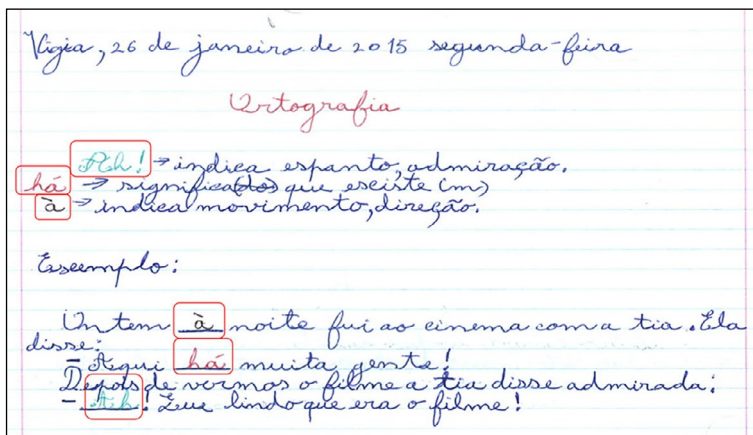 Vigia, 26 de janeiro de 2015 segunda-feira
Ortografia
Ah! → indica espanto, admiração.
há → significa(dos) que esciste (m)
à → indica movimento, direção.
Escemplo:
Ontem à noite fui ao cinema com a tia. Ela
disse:
- Aqui há muita gente!
Depois de vermos o filme a tia disse admirada:
- Ah! Que lindo que era o filme!